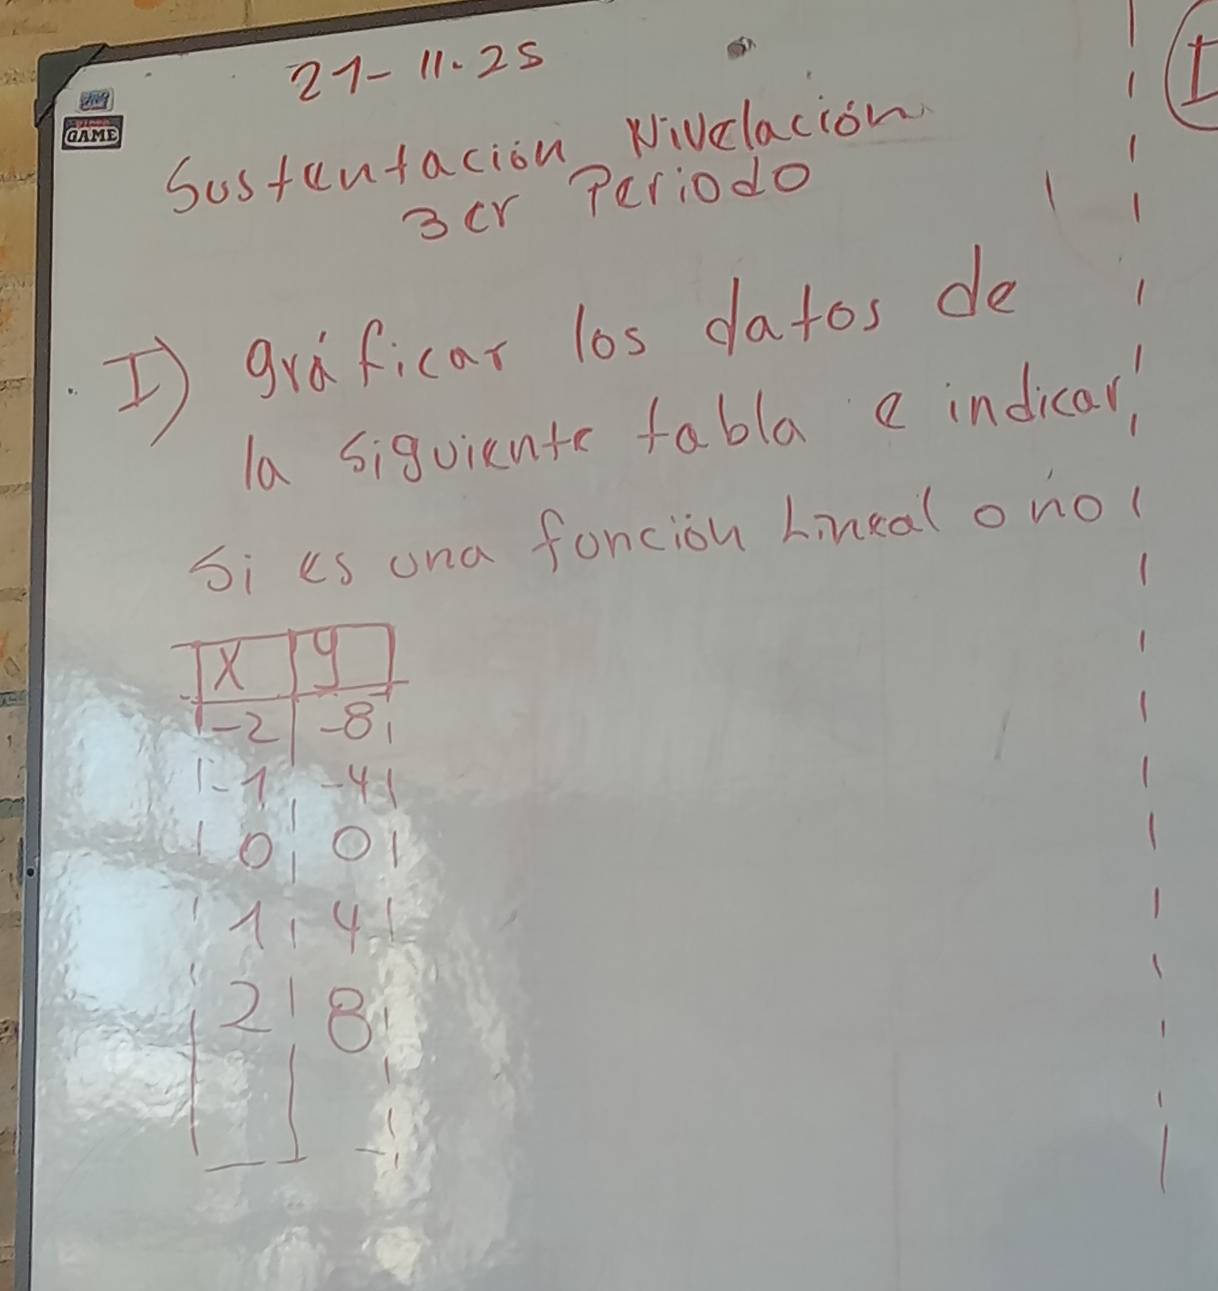 21-11.25
GAME
Sustentación Nivelación
3er Periodo
I) gráficar los datos de
la siguiente tabla e indicar
si es una función Lineal o no
x y
-2 -8
-1 -4
0 0
1 4
2 8